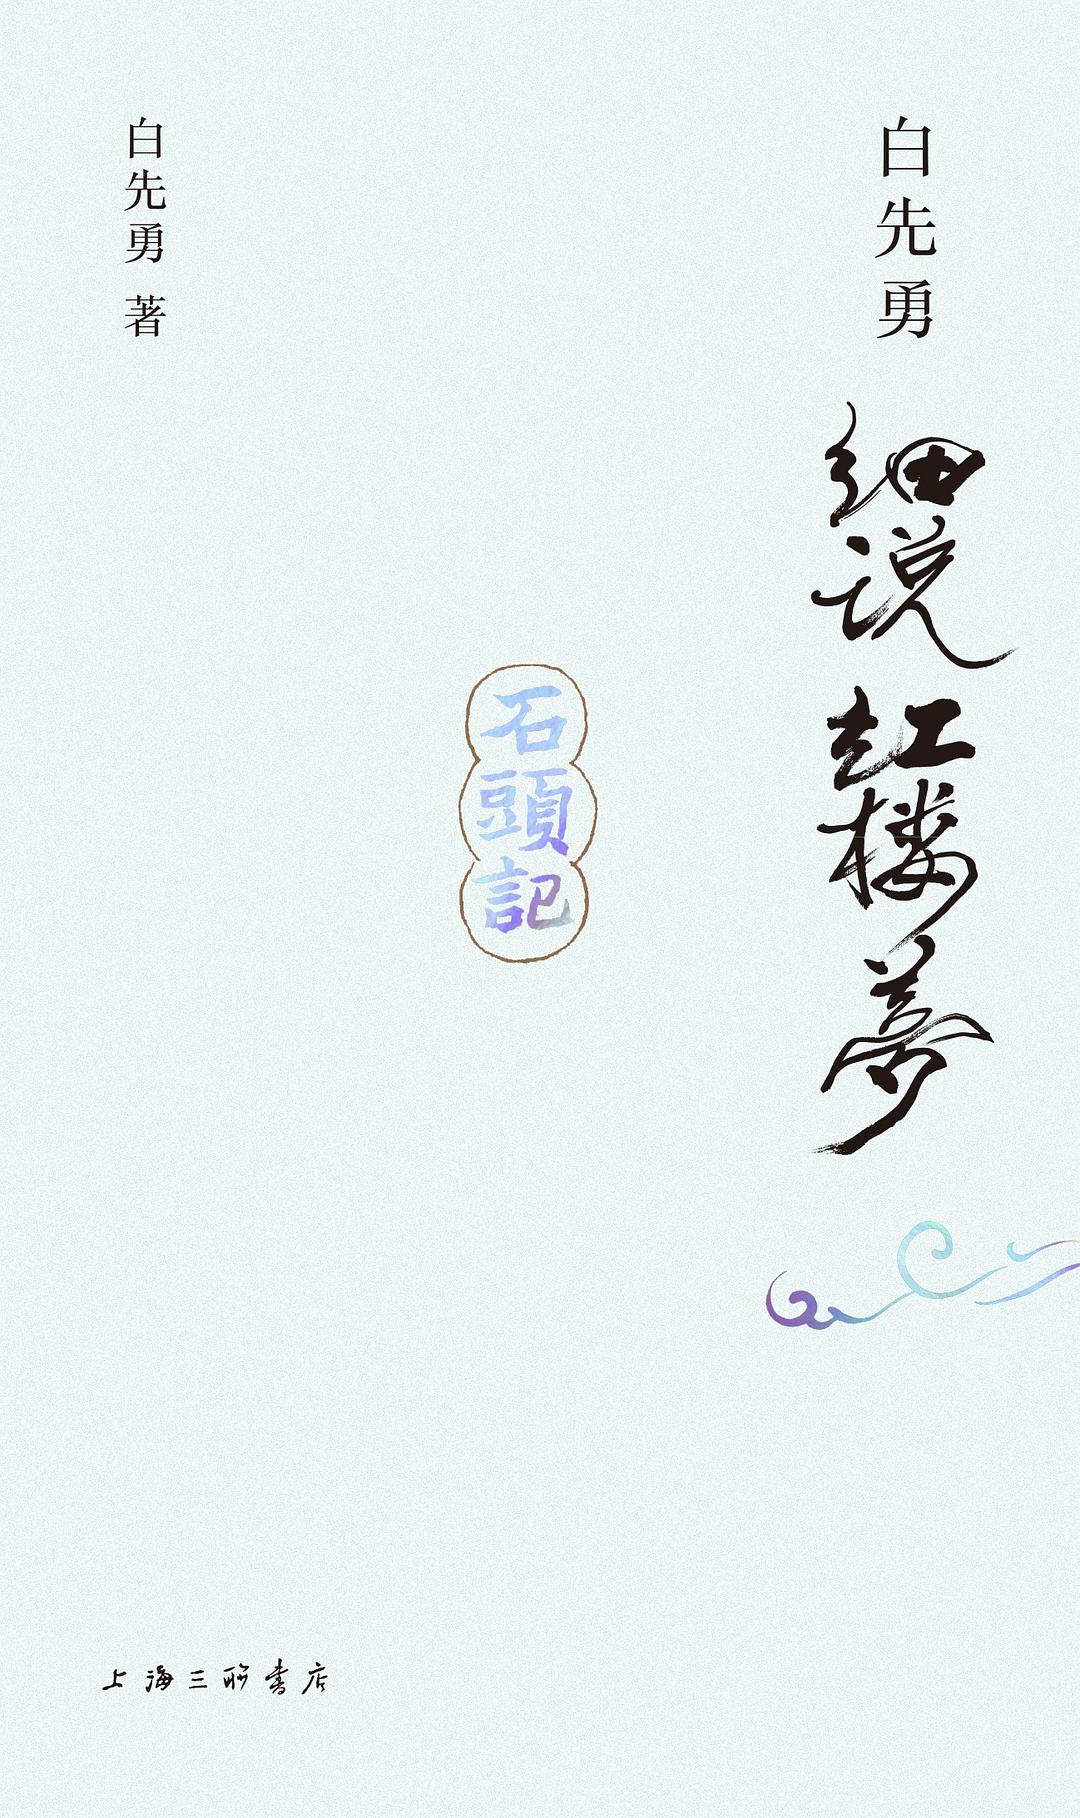 白先勇
细说
红楼梦
石頭記
白先勇 著
上海三联書店